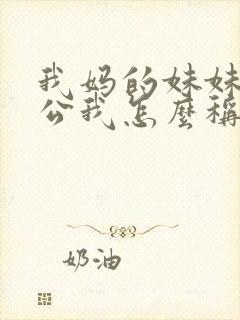 我妈的妹妹
公我怎麼稱
奶油